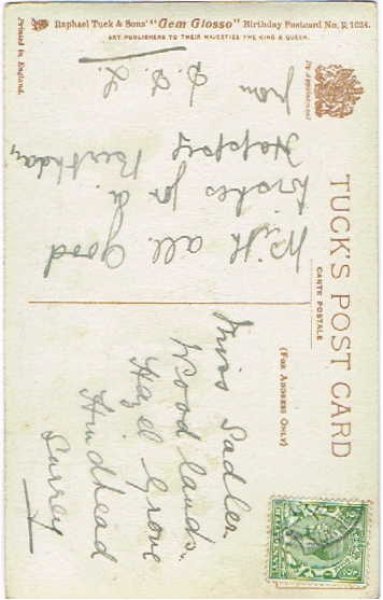 Raphael Tuck & Sons' "Gem Glosso" Birthday Postcard No. R 1024.
ART PUBLISHERS TO THEIR MAJESTIES THE KING & QUEEN.
Printed in England.
By Appointment
TUCK'S POST CARD
CARTE POSTALE
(FOR ADDRESS ONLY)
With all good
wishes for a
Happie
Birthday
from
Miss Sadler.
Woodlands.
Hazel Grove
Hindhead
Surrey